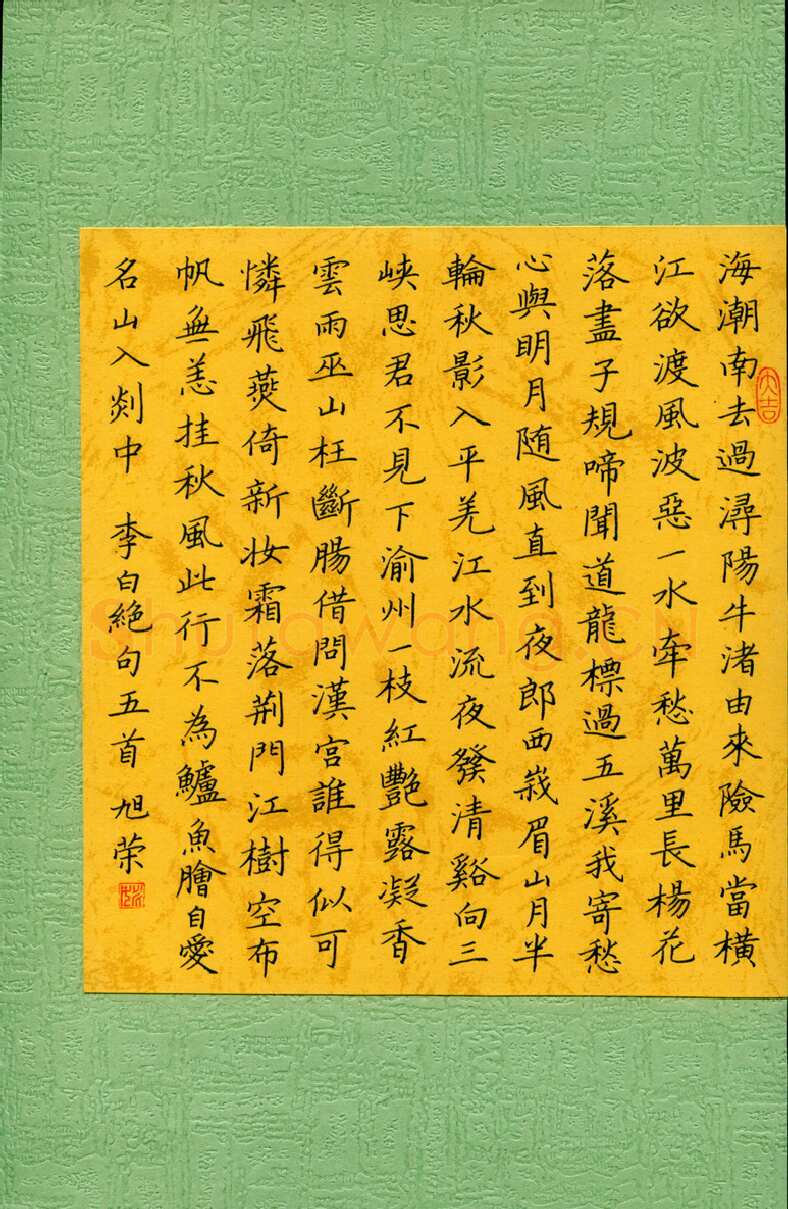 海潮南去過潯陽牛渚由來險馬當橫
江欲渡風波惡一水牽愁萬里長楊花
落盡子規啼聞道龍標過五溪我寄愁
心與眀月随風直到夜郎西峩眉山月半
輪秋影入平羌江水流夜發清谿向三
峽思君不見下渝州一枝紅艷露凝香
雲雨巫山枉斷腸借問漢宮誰得似可
憐飛燕倚新妝霜落荆門江樹空布
帆無恙挂秋風此行不為鱸魚膾自愛
名山入剡中 李白絶句五首 旭荣
大吉
Shufawang.cn